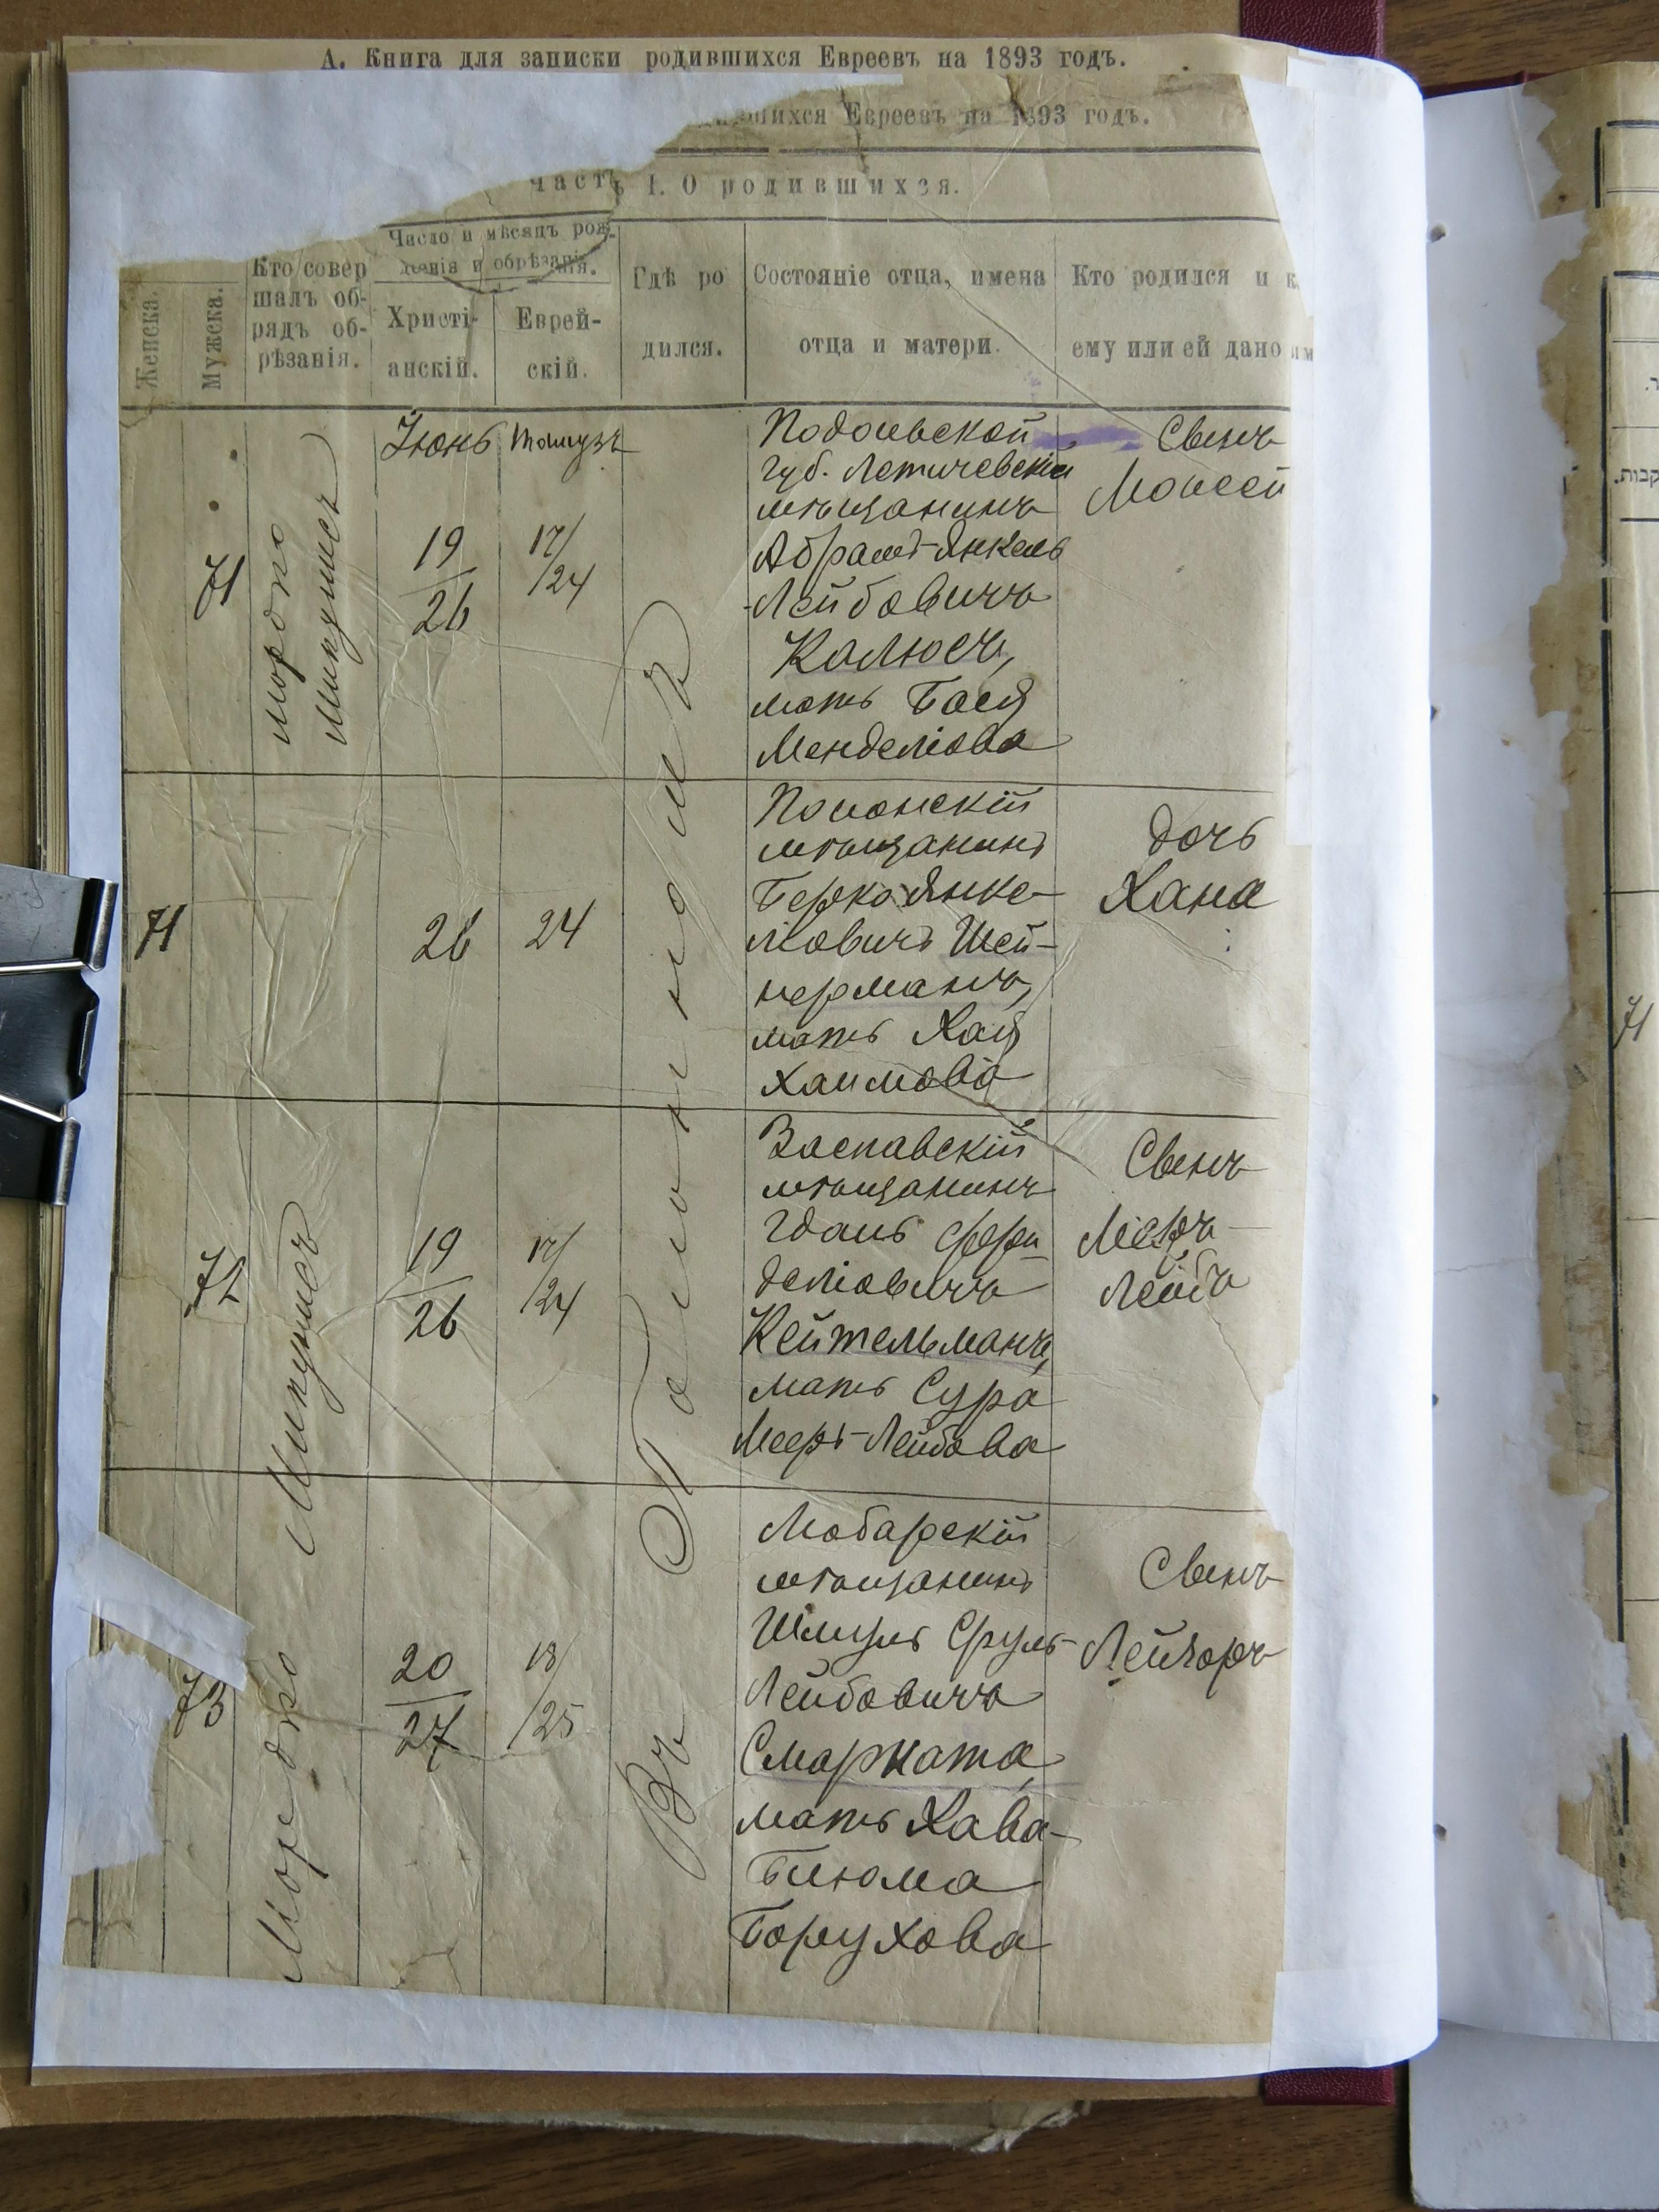 А. Книга для записки родившихся Евреевъ на 1893 годъ.
вшихся Евреевъ на 1893 годъ.
Часть I. О родившихся.
Женска.
Мужска.
Кто совер
шалъ об-
рядъ об-
рѣзанія.
Число и мѣсяцъ рож-
денія и обрѣзанія.
Христі-
анскій.
Еврей-
скій.
Гдѣ ро
дился.
Состояніе отца, имена
отца и матери.
Кто родился и к
ему или ей дано им
71
Мордко
Июнь
19
26
Тамузъ
17/
/24
Въ Полонномъ
Подольской
губ. Летичевскій
мѣщанинъ
Абрамъ-Янкель
Лейбовичъ
Калюсъ,
мать Бася
Менделіова
Сынъ
Моисей
71
26
24
Полонскій
мѣщанинъ
Берко Янке-
ліовичъ Шей-
нерманъ,
мать Хая
Хаимова
дочь
Хана
72
19
26
17/
/24
Заславскій
мѣщанинъ
Гдаль Фри-
деліовичъ
Кейтельманъ,
мать Сура
Меерь-Лейбова
Сынъ
Меіеръ-
Лейбъ
73
Мордко
20
27
18/
/25
Лабарскій
мѣщанинъ
Шмуль Сруль-
Лейбовичъ
мать Хава-
Блюма
Борухова
Сынъ
Лейзоръ
71